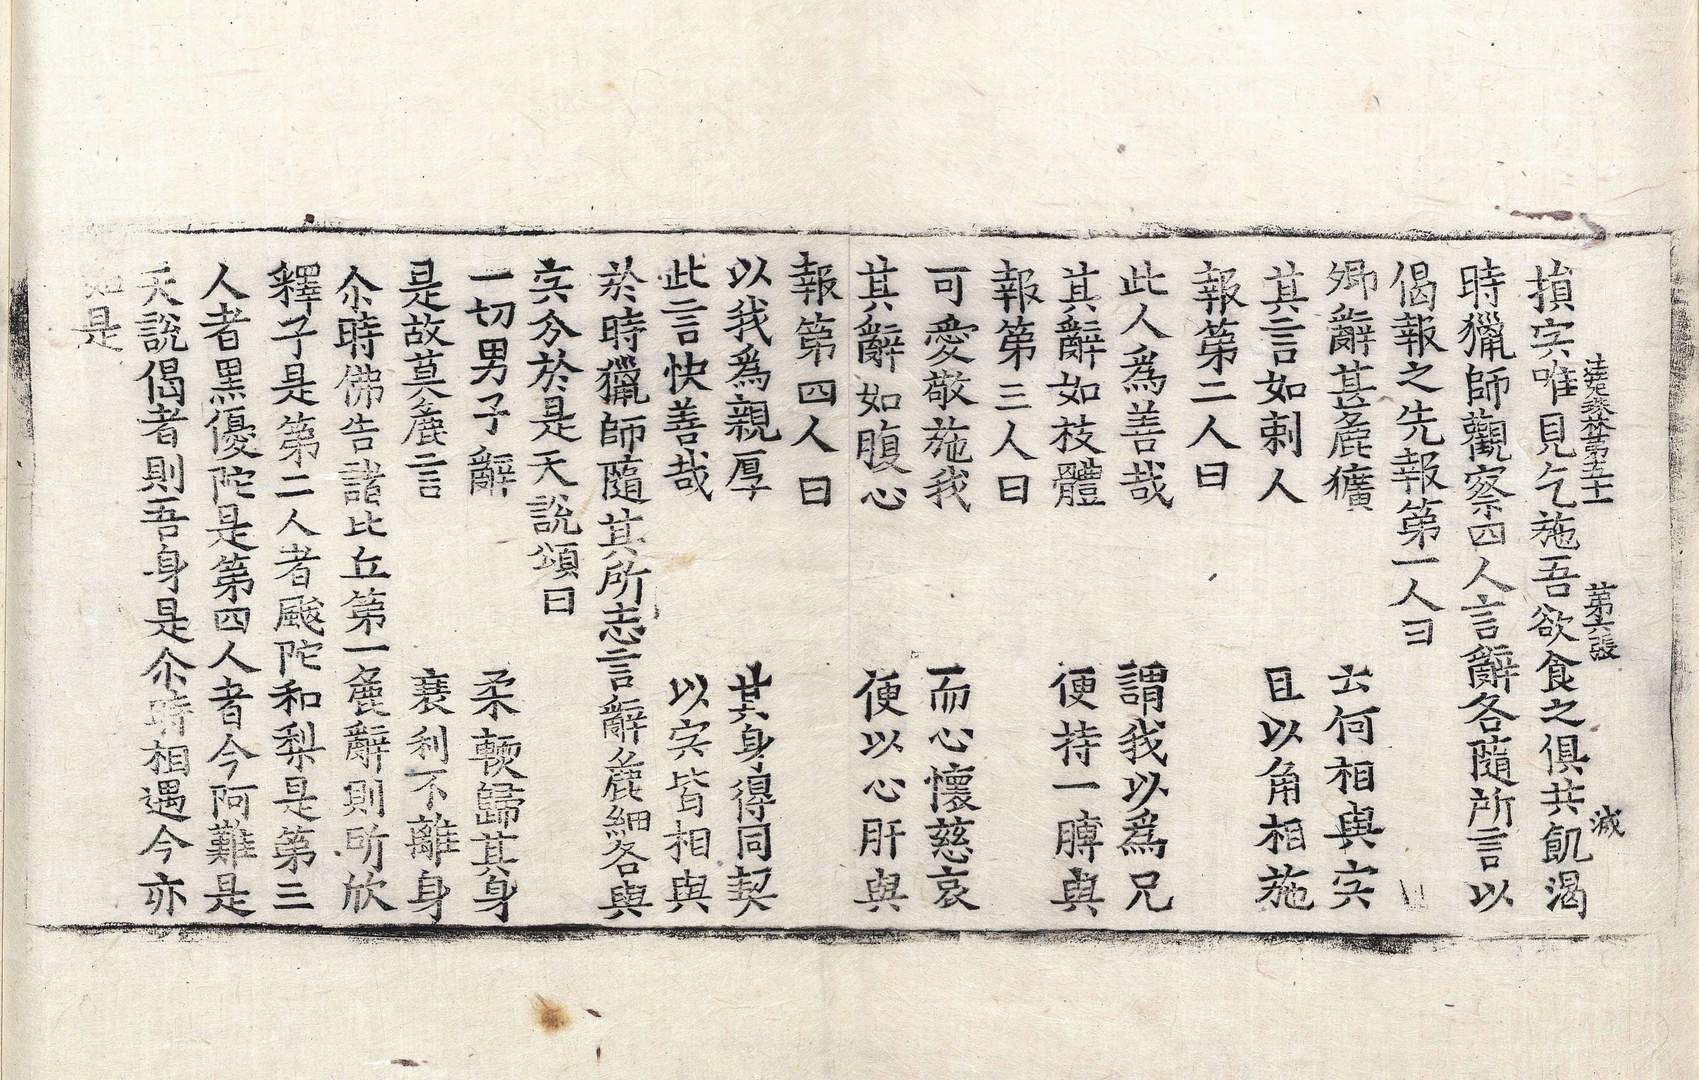 法苑珠林第五十 第六張 減
損宍唯見乞施吾欲食之俱共飢渴
時獵師觀察四人言辭各隨所言以
偈報之先報第一人曰
卿辭甚麁獷 云何相與宍
其言如刺人 且以角相施
報第二人曰
此人爲善哉 謂我以爲兄
其辭如枝體 便持一膞與
報第三人曰
可愛敬施我 而心懷慈哀
其辭如腹心 便以心肝與
報第四人曰
以我爲親厚 其身得同契
此言快善哉 以宍皆相與
於時獵師隨其所志言辭麁細各與
宍分於是天說頌曰
一切男子辭 柔輭歸其身
是故莫麁言 衰利不離身
尒時佛告諸比丘第一麁辭則所欣
釋子是第二人者颰陀和梨是第三
人者黑優陀是第四人者今阿難是
天說偈者則吾身是尒時相遇今亦
如是